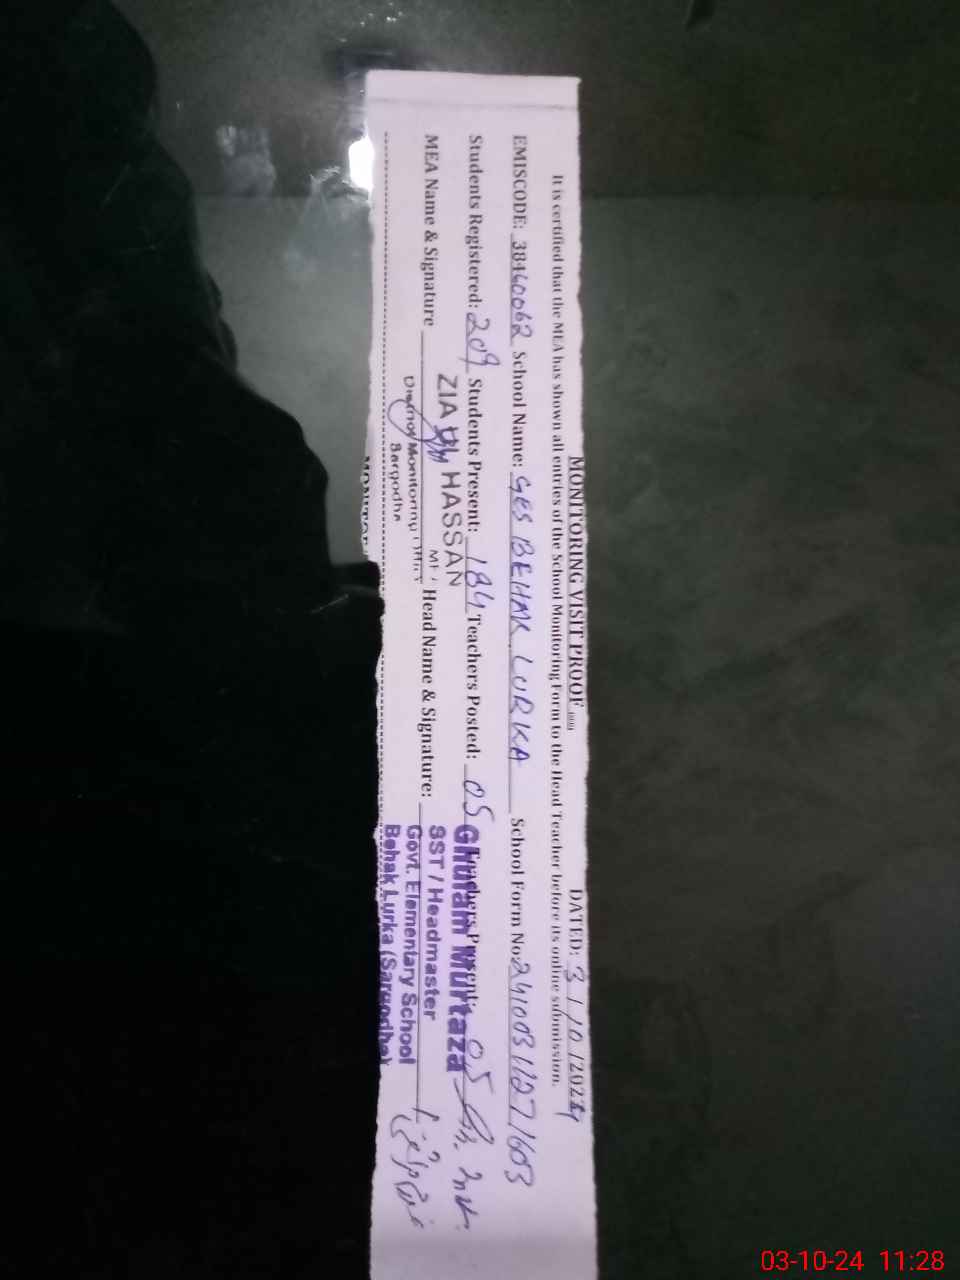 MONITORING VISIT PROOF
DATED: 3/10/2024
It is certified that the MEA has shown all entries of the School Monitoring Form to the Head Teacher before its online submission.
EMISCODE: 38460062 School Name: GES BEHAK LURKA School Form No 24100311271603
Students Registered: 209 Students Present: 184 Teachers Posted: 05 Teachers Present: 05
MEA Name & Signature Head Name & Signature:
ZIA HASSAN
District Monitoring Office
Sargodha
Ghulam Murtaza
SST / Headmaster
Govt. Elementary School
Behak Lurka (Sargodha)
03-10-24 11:28